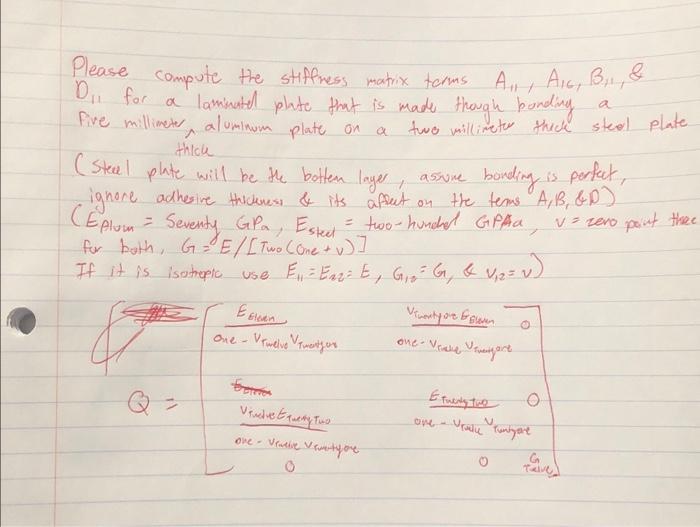 Please compute the stiffness matrix terms A₁₁, A₁₆, B₁₁, &
D₁₁ for a laminated plate that is made though bonding a
five millimeter thick aluminum plate on a two millimeter thick steel plate
(Steel plate will be the bottem layer, assume bonding is perfect,
ignore adhesive thickness & its affect on the terms A, B, & D)
(E Alum = Seventy GPa, E steel = two-hundred GPa, v = zero point three
for both, G = E/[Two(One + v)]
If it is isotropic use E₁₁ = E₂₂ = E, G₁₂ = G, & v₁₂ = v)
E Eleven V Twenty one E Eleven 0
one - V Twelve V Twenty one one - V Twelve V Twenty one
Q =
V Twelve E Twenty Two E Twenty two 0
one - V Twelve V Twenty one one - V Twelve V Twenty one
0 0 G Twelve